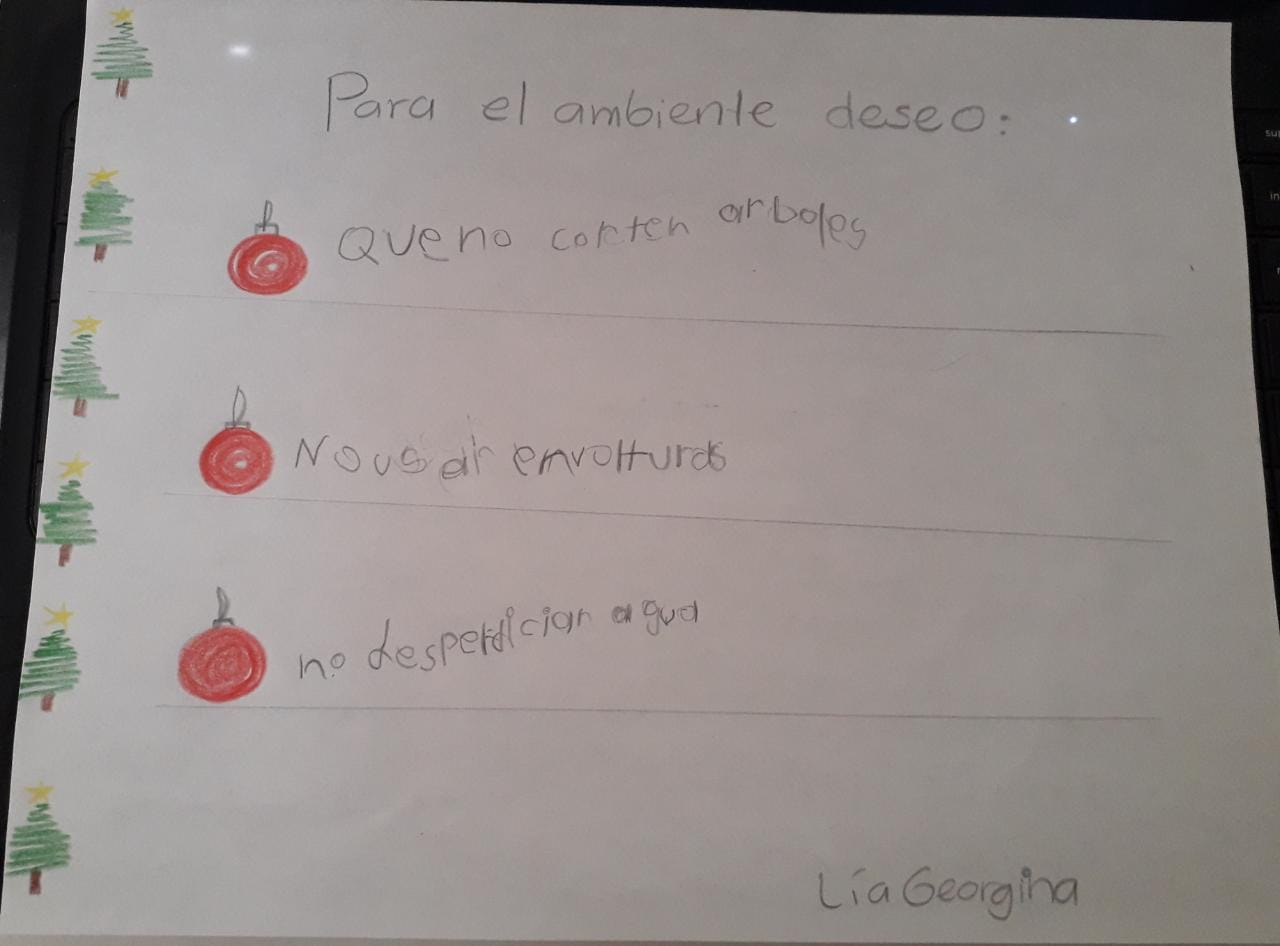 Para el ambiente deseo:
Que no corten arboles
No usar envolturas
no desperdician agua
Lía Georgina